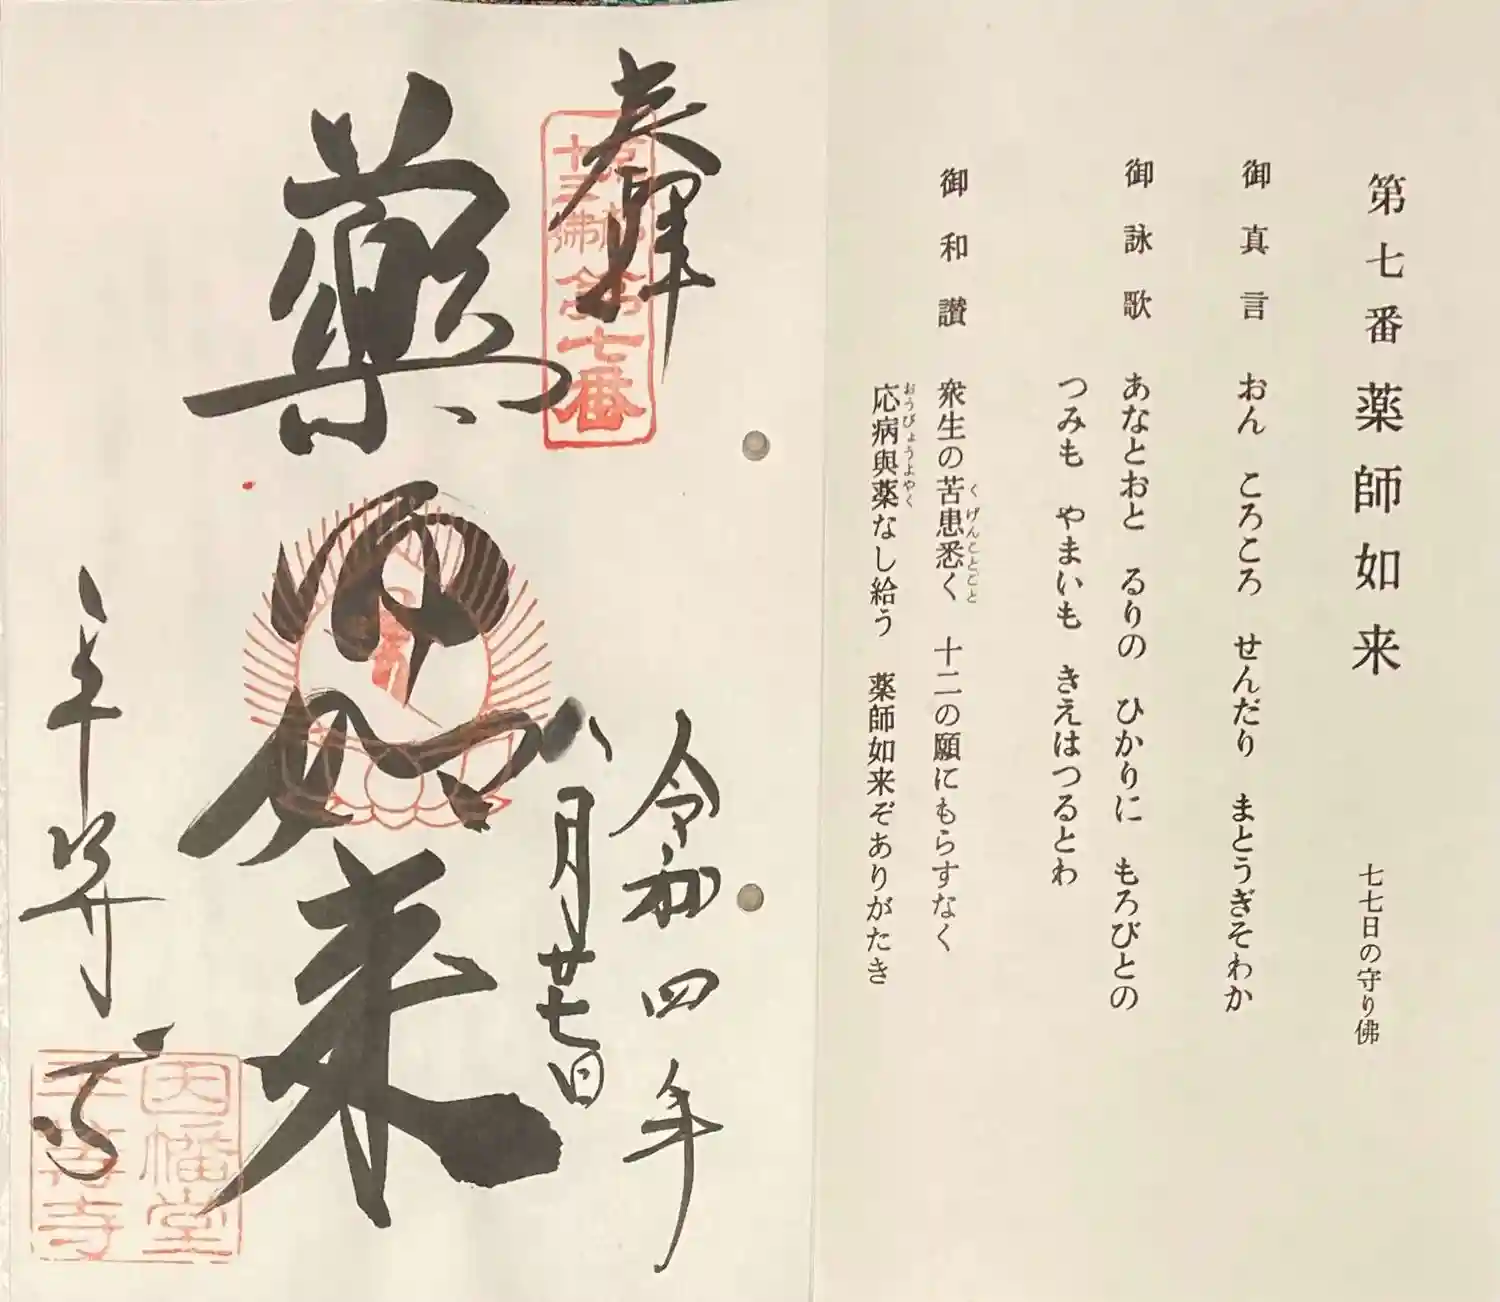 第七番 薬師如来 七七日の守り佛
御真言 おん ころころ せんだり まとうぎそわか
御詠歌 あなとおと るりの ひかりに もろびとの
つみも やまいも きえはつるとわ
御和讃 衆生の苦患悉く 十二の願にもらすなく
くげんことごと
応病與薬なし給う 薬師如来ぞありがたき
おうびょうよやく
奉拝
京都十三佛第七番
令和四年
八月廿七日
薬師如来
平等寺
因幡堂
平等寺